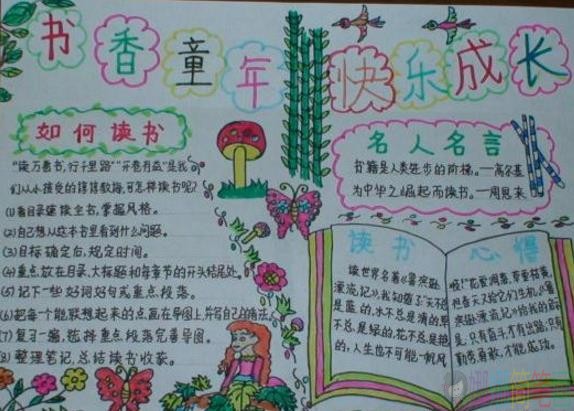 书香童年 快乐成长
如何读书
"读万卷书,行千里路""开卷有益"是我
们从小接受的谆谆教诲,可怎样读书呢?
(1)看目录建读全书,掌握风格。
(2)自己想从这本书里看到什么问题。
(3)目标确定后,规定时间。
(4)重点放在目录、大标题和每章节的开头结尾处。
(5)记下一些好词好句或重点段落。
(6)把每个能联想起来的点画在导图上,并写自己的
(7)复习一遍,选择重点段落完善导图。
(8)整理笔记,总结读书收获。
名人名言
书籍是人类进步的阶梯。—高尔基
为中华之崛起而读书。—周恩来
读书 心得
读世界名著《鲁宾逊
漂流记》,我知道了:天不总
是蓝的,水不总是清的,草
不总是绿的,花不总是艳
的,人生也不可能一帆风
顺!花要凋零,草要枯黄,
但春天又给它们生机。《鲁
宾逊漂流记》给我的启
是:只有奋斗,才有出路;只有
勤劳勇敢,才能成功。
简笔